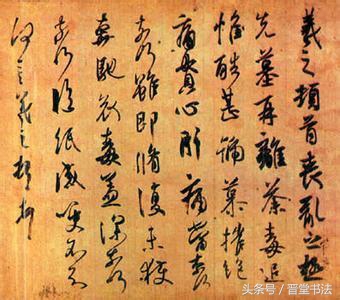 羲之頓首喪亂之極
先墓再離荼毒追
惟酷甚號慕摧絕
痛貫心肝痛當奈何
奈何雖即脩復未獲
奔馳哀毒益深奈何
奈何臨紙感哽不知
何言羲之頓首頓首
头条号／晋堂书法